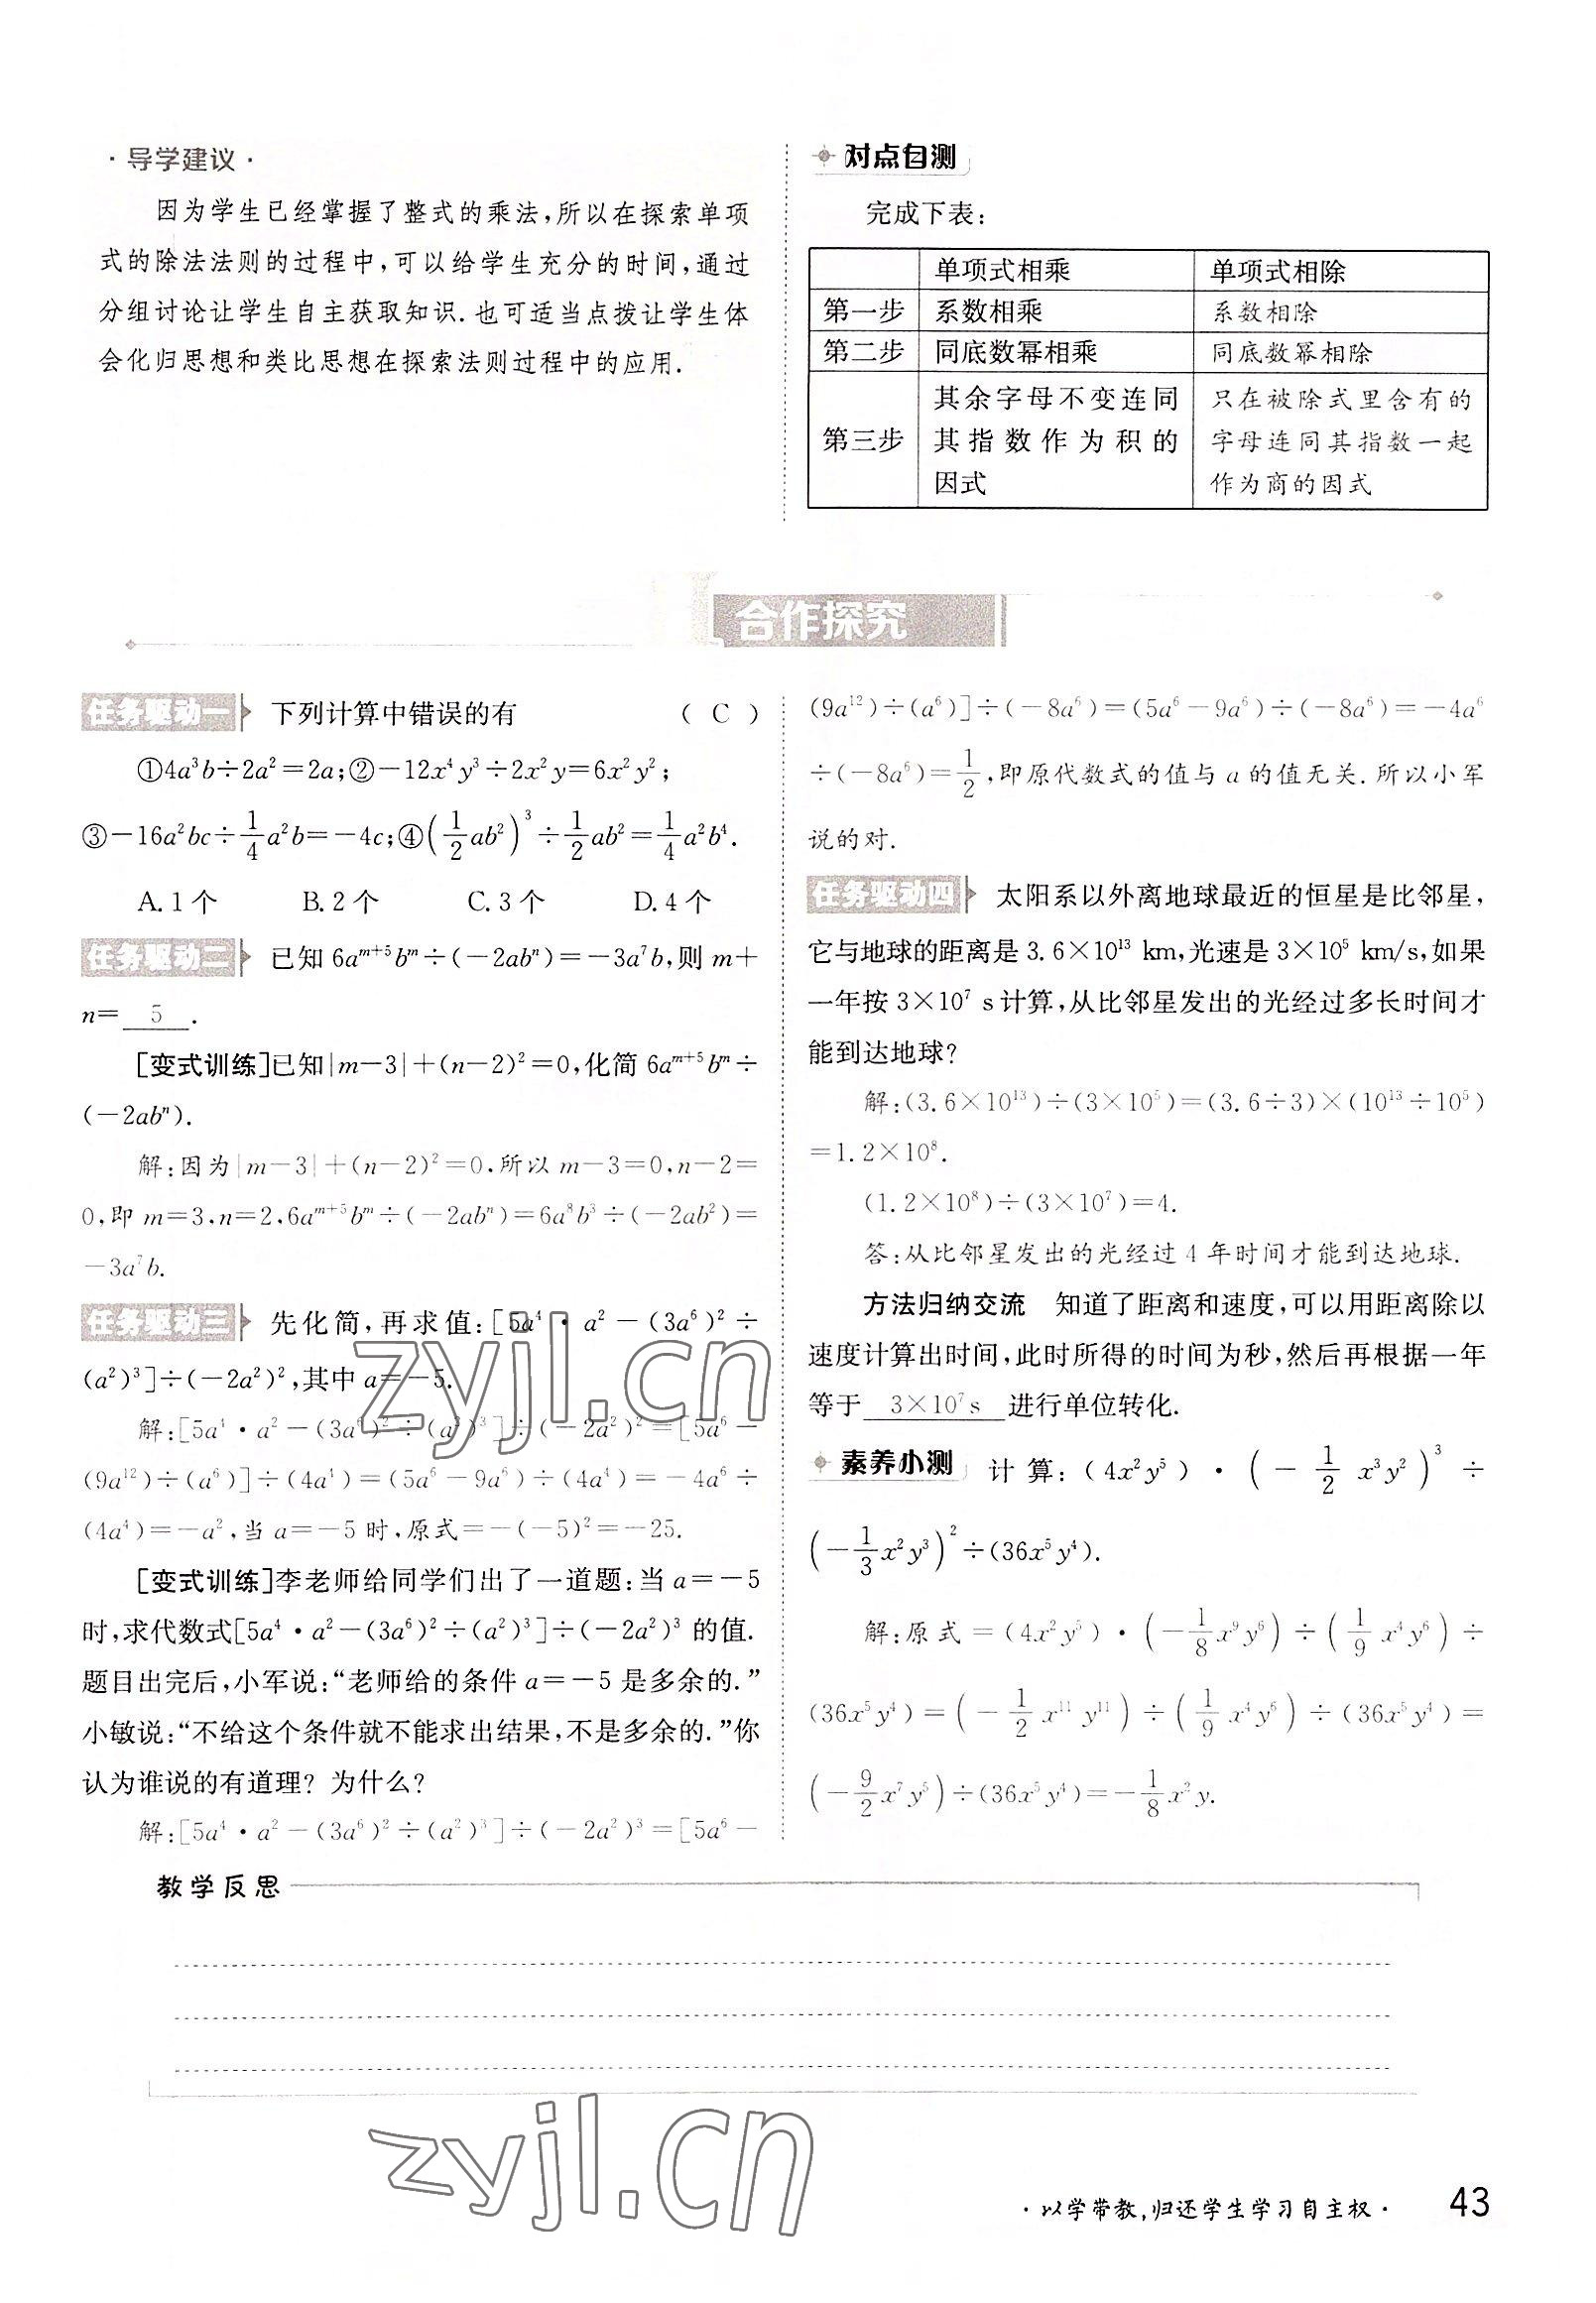 ·导学建议·
因为学生已经掌握了整式的乘法,所以在探索单项
式的除法法则的过程中,可以给学生充分的时间,通过
分组讨论让学生自主获取知识.也可适当点拨让学生体
会化归思想和类比思想在探索法则过程中的应用.
对点自测
完成下表:
单项式相乘 单项式相除
第一步 系数相乘 系数相除
第二步 同底数幂相乘 同底数幂相除
第三步 其余字母不变连同 只在被除式里含有的
其指数作为积的 字母连同其指数一起
因式 作为商的因式
合作探究
任务驱动一 下列计算中错误的有 ( C )
①4a³b÷2a²=2a;②-12x⁴y³÷2x²y=6x²y²;
③-16a²bc÷1/4a²b=-4c;④(1/2ab²)³÷1/2ab²=1/4a²b⁴.
A.1个 B.2个 C.3个 D.4个
任务驱动二 已知6aᵐ⁺⁵bᵐ÷(-2abⁿ)=-3a⁷b,则m+
n= 5 .
[变式训练]已知|m-3|+(n-2)²=0,化简6aᵐ⁺⁵bᵐ÷
(-2abⁿ).
解:因为|m-3|+(n-2)²=0,所以m-3=0,n-2=
0,即m=3,n=2,6aᵐ⁺⁵bᵐ÷(-2abⁿ)=6a⁸b³÷(-2ab²)=
-3a⁷b.
任务驱动三 先化简,再求值:[5a⁴·a²-(3a⁶)²÷
(a²)³]÷(-2a²)²,其中a=-5.
解:[5a⁴·a²-(3a⁶)²÷(a²)³]÷(-2a²)²=[5a⁶-
(9a¹²)÷(a⁶)]÷(4a⁴)=(5a⁶-9a⁶)÷(4a⁴)=-4a⁶÷
(4a⁴)=-a²,当a=-5时,原式=-(-5)²=-25.
[变式训练]李老师给同学们出了一道题:当a=-5
时,求代数式[5a⁴·a²-(3a⁶)²÷(a²)³]÷(-2a²)³的值.
题目出完后,小军说:“老师给的条件a=-5是多余的.”
小敏说:“不给这个条件就不能求出结果,不是多余的.”你
认为谁说的有道理?为什么?
解:[5a⁴·a²-(3a⁶)²÷(a²)³]÷(-2a²)³=[5a⁶-
(9a¹²)÷(a⁶)]÷(-8a⁶)=(5a⁶-9a⁶)÷(-8a⁶)=-4a⁶
÷(-8a⁶)=1/2,即原代数式的值与a的值无关.所以小军
说的对.
任务驱动四 太阳系以外离地球最近的恒星是比邻星,
它与地球的距离是3.6×10¹³ km,光速是3×10⁵ km/s,如果
一年按3×10⁷ s计算,从比邻星发出的光经过多长时间才
能到达地球?
解:(3.6×10¹³)÷(3×10⁵)=(3.6÷3)×(10¹³÷10⁵)
=1.2×10⁸.
(1.2×10⁸)÷(3×10⁷)=4.
答:从比邻星发出的光经过4年时间才能到达地球.
方法归纳交流 知道了距离和速度,可以用距离除以
速度计算出时间,此时所得的时间为秒,然后再根据一年
等于 3×10⁷s 进行单位转化.
素养小测 计算:(4x²y⁵)·(-1/2x³y²)³÷
(-1/3x²y³)²÷(36x⁵y⁴).
解:原式=(4x²y⁵)·(-1/8x⁹y⁶)÷(1/9x⁴y⁶)÷
(36x⁵y⁴)=(-1/2x¹¹y¹¹)÷(1/9x⁴y⁶)÷(36x⁵y⁴)=
(-9/2x⁷y⁵)÷(36x⁵y⁴)=-1/8x²y.
教学反思
zyjl.cn
zyjl.cn
·以学带教,归还学生学习自主权· 43